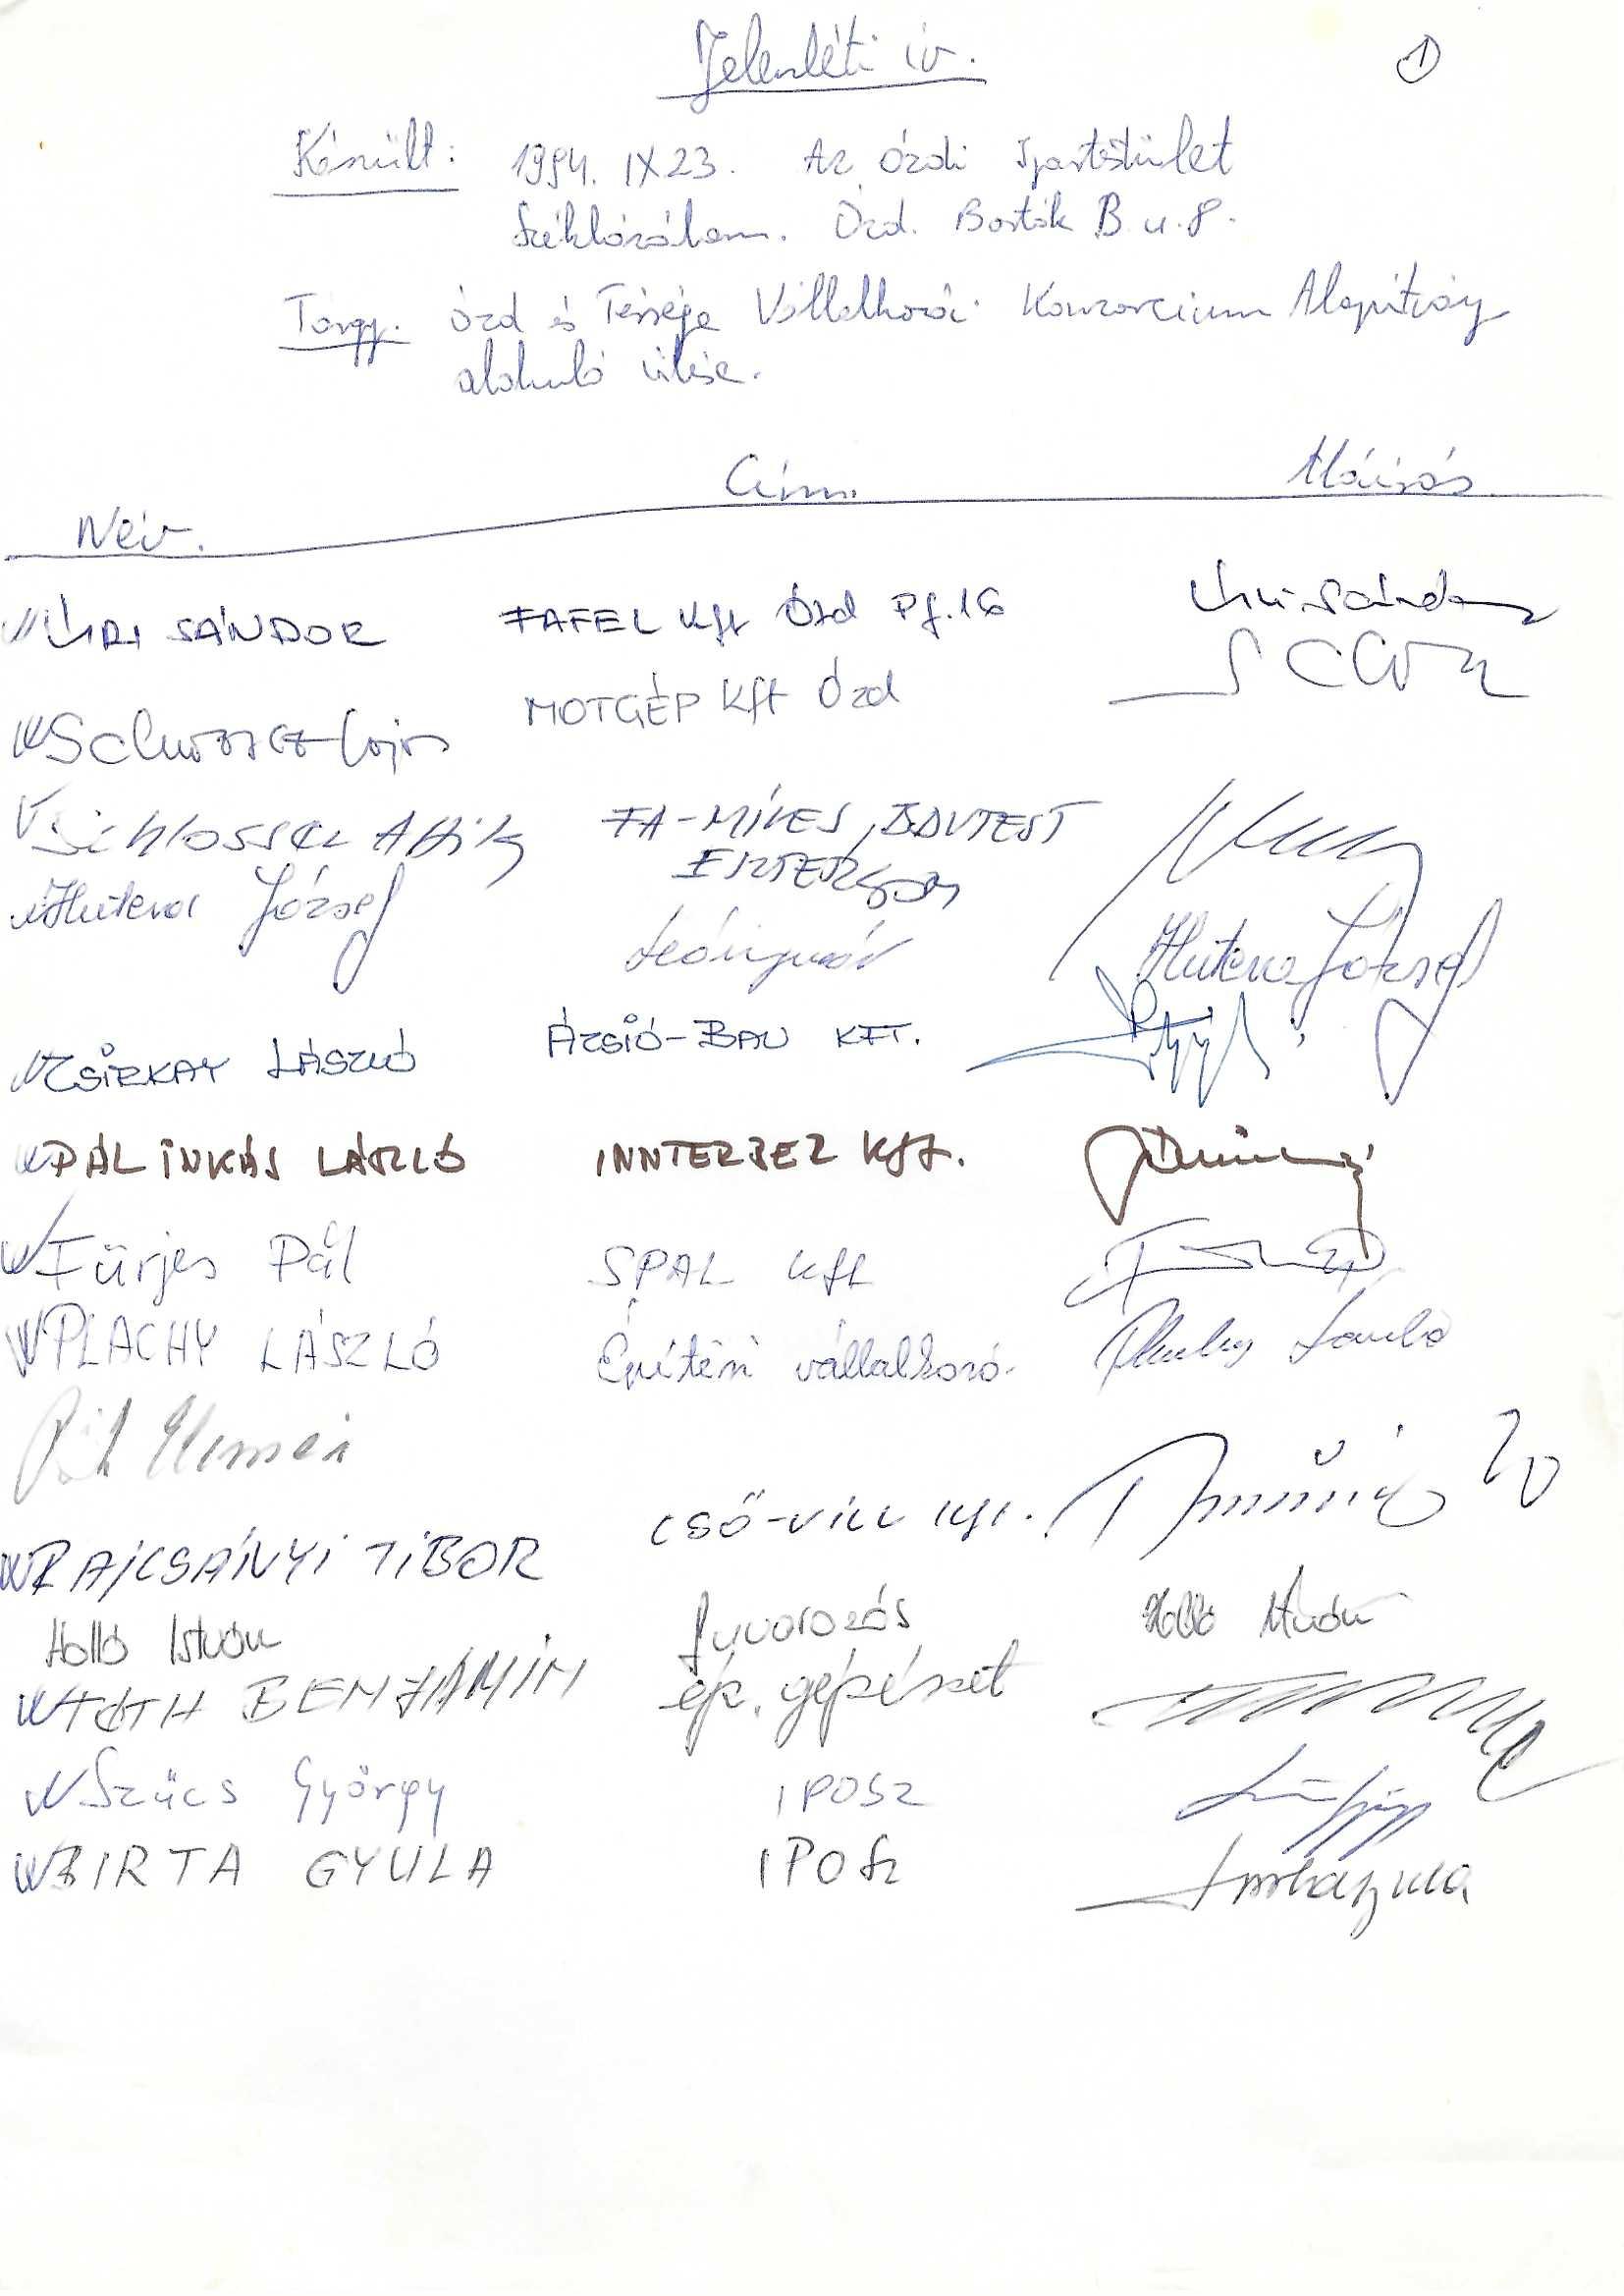 Jelenléti ív.
1
Készült: 1994. IX 23. Az Ózdi Ipartestület
Székházában. Ózd. Bartók B. u. 8.
Tárgy. Ózd és Térsége Vállalkozói Konzorcium Alapítvány
alakuló ülése.
Név. Cím. Aláírás
ÚRI SÁNDOR FAFEL Kft Ózd Pf. 16 Úri Sándor
Schwarcz Lajos MOTGÉP Kft Ózd
Schlosser Attila FA-MÍVES, BAUTEST
József József
CSIRKAY LÁSZLÓ ÁZSIÓ-BAU KFT.
PÁLINKÁS LÁSZLÓ INNTERBER Kft.
Fürjes Pál SPAL Kft
PLACHY LÁSZLÓ Építési vállalkozó. Plachy László
Elemér
RAJCSÁNYI TIBOR CSŐ-VILL Kft.
Holló István fuvarozás Holló István
TÓTH BENJÁMIN ép. gépészet
Szűcs György IPOSZ
BIRTA GYULA IPOSz Birta Gyula